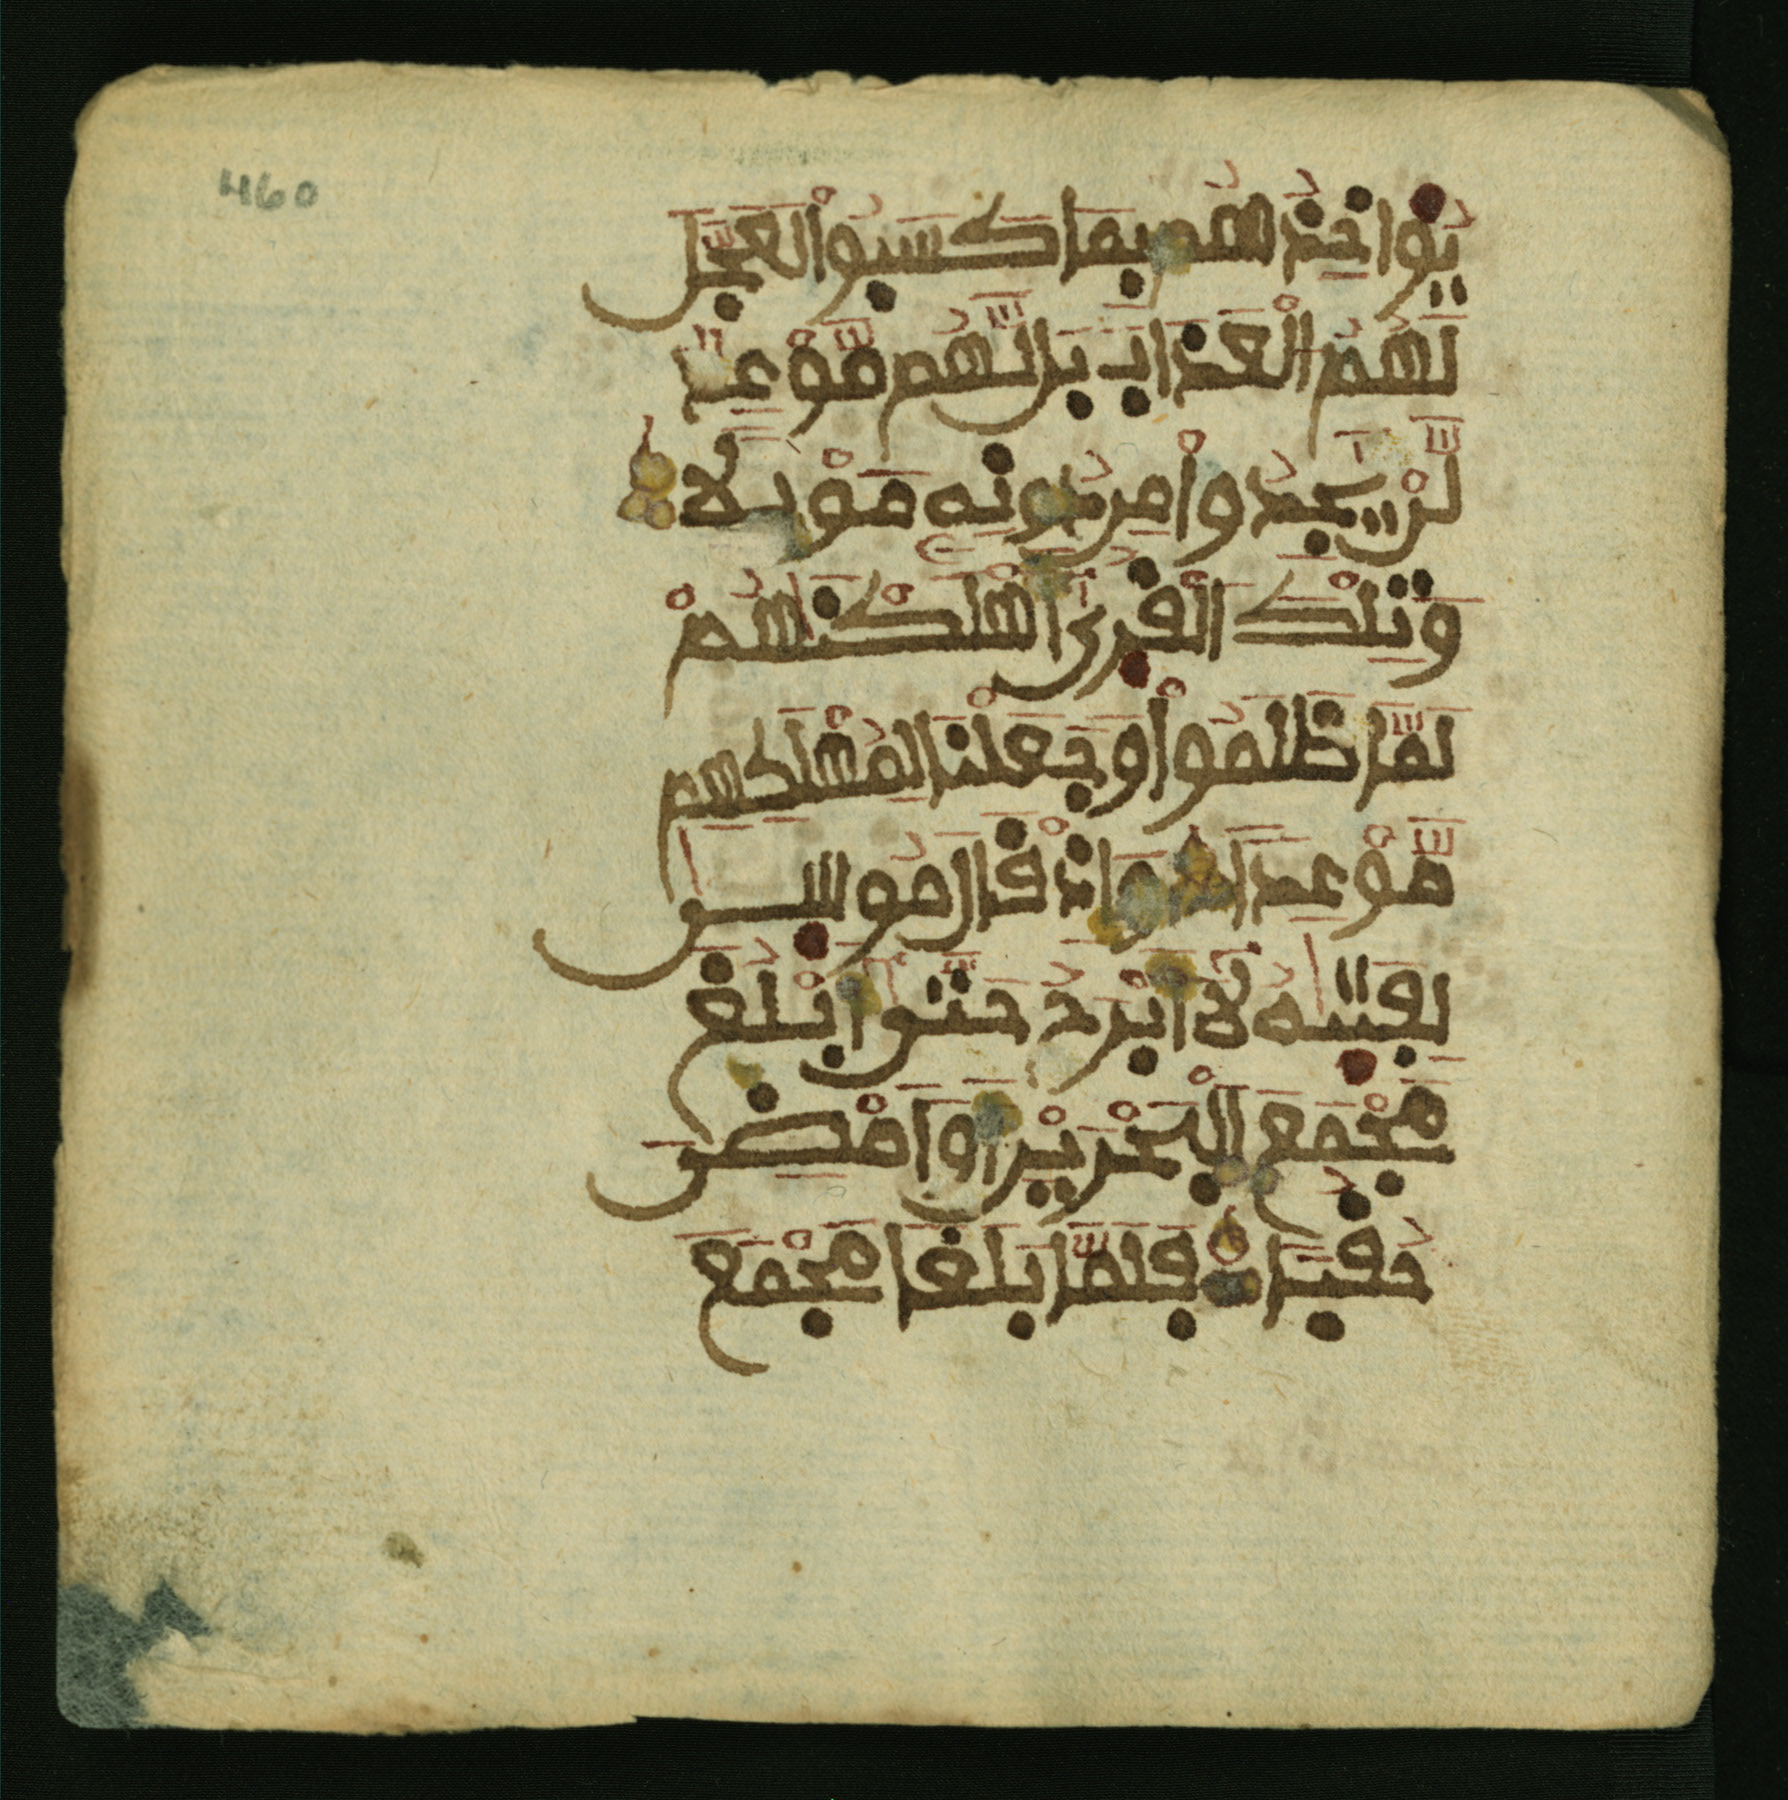 460
يُوَاخِذُهُم بِمَا كَسَبُواْ لَعَجَّلَ
لَهُمُ الْعَذَابَ بَل لَّهُم مَّوْعِدٌ
لَّنْ يَّجِدُواْ مِن دُونِهِ مَوْيِلاً
وَتِلْكَ الْقُرَىٰ أَهْلَكْنَٰهُمْ
لَمَّا ظَلَمُواْ وَجَعَلْنَا لِمُهْلَكِهِم
مَّوْعِداً وَإِذْ قَالَ مُوسَىٰ
لِفَتَيٰهُ لَا أَبْرَحُ حَتَّىٰ أَبْلُغَ
مَجْمَعَ الْبَحْرَيْنِ أَوْ أَمْضِيَ
حُقُباً فَلَمَّا بَلَغَا مَجْمَعَ